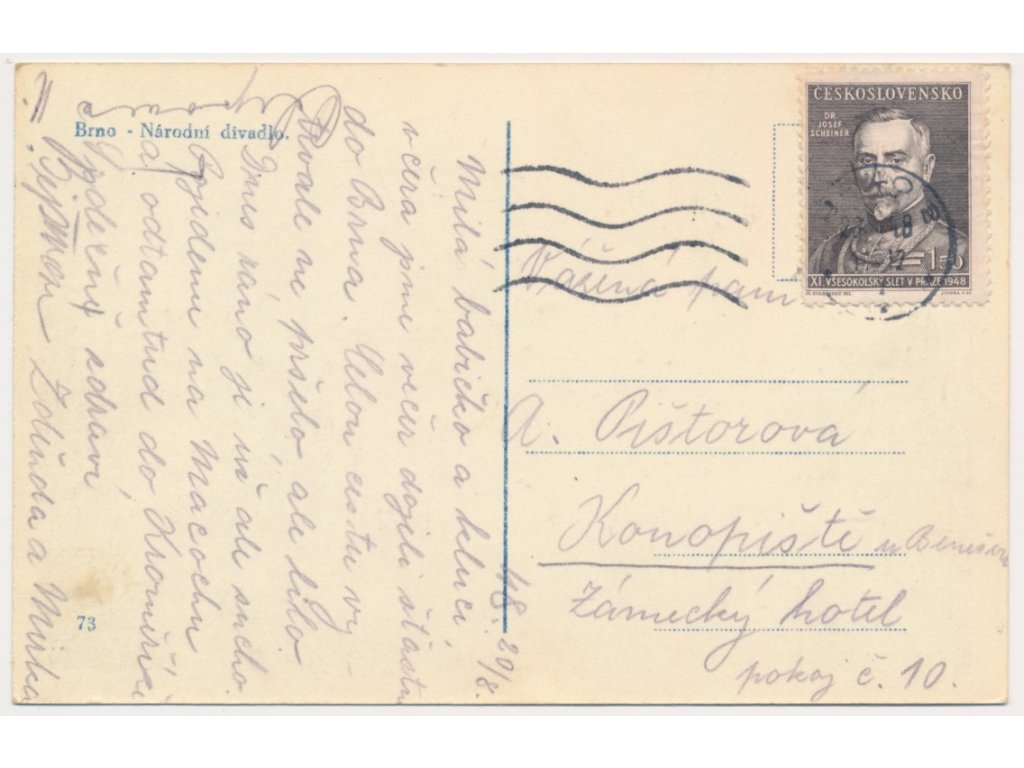 Brno - Národní divadlo.
73
48. 20/8.
Milá babičko a kluci.
včera jsme večer dojeli šťastně
do Brna. Celou cestu vy-
trvale ne pršelo ale lilo.
Dnes ráno ji už ale sucho.
Pojedeme na Macochu
a odtamtud do Kroměříže
Srdečný zdraví
Zdeňda a Mirka
ČESKOSLOVENSKO
DR
JOSEF
SCHEINER
1.50
XI. VŠESOKOLSKÝ SLET V PRAZE 1948
Vážená paní
A. Pištorová
Konopiště u Benešova
Zámecký hotel
pokoj č. 10.